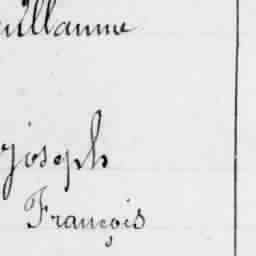 uillaume
joseph
François